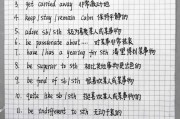 3. get carried away 非常激动的
4. keep / stay / remain calm 保持平静的
5. adore sb / sth 极为喜爱某人或某事物
6. be passionate about 对某事物热爱
7. have / has a yearing for sth 渴望得到某事物
8. be superior to sth 比某事物更出色的
9. be fond of sb / sth 很喜欢某人或某事物
10. quite like sb / sth 挺喜欢某人或某事物
11. be indifferent to sth 无动于衷的